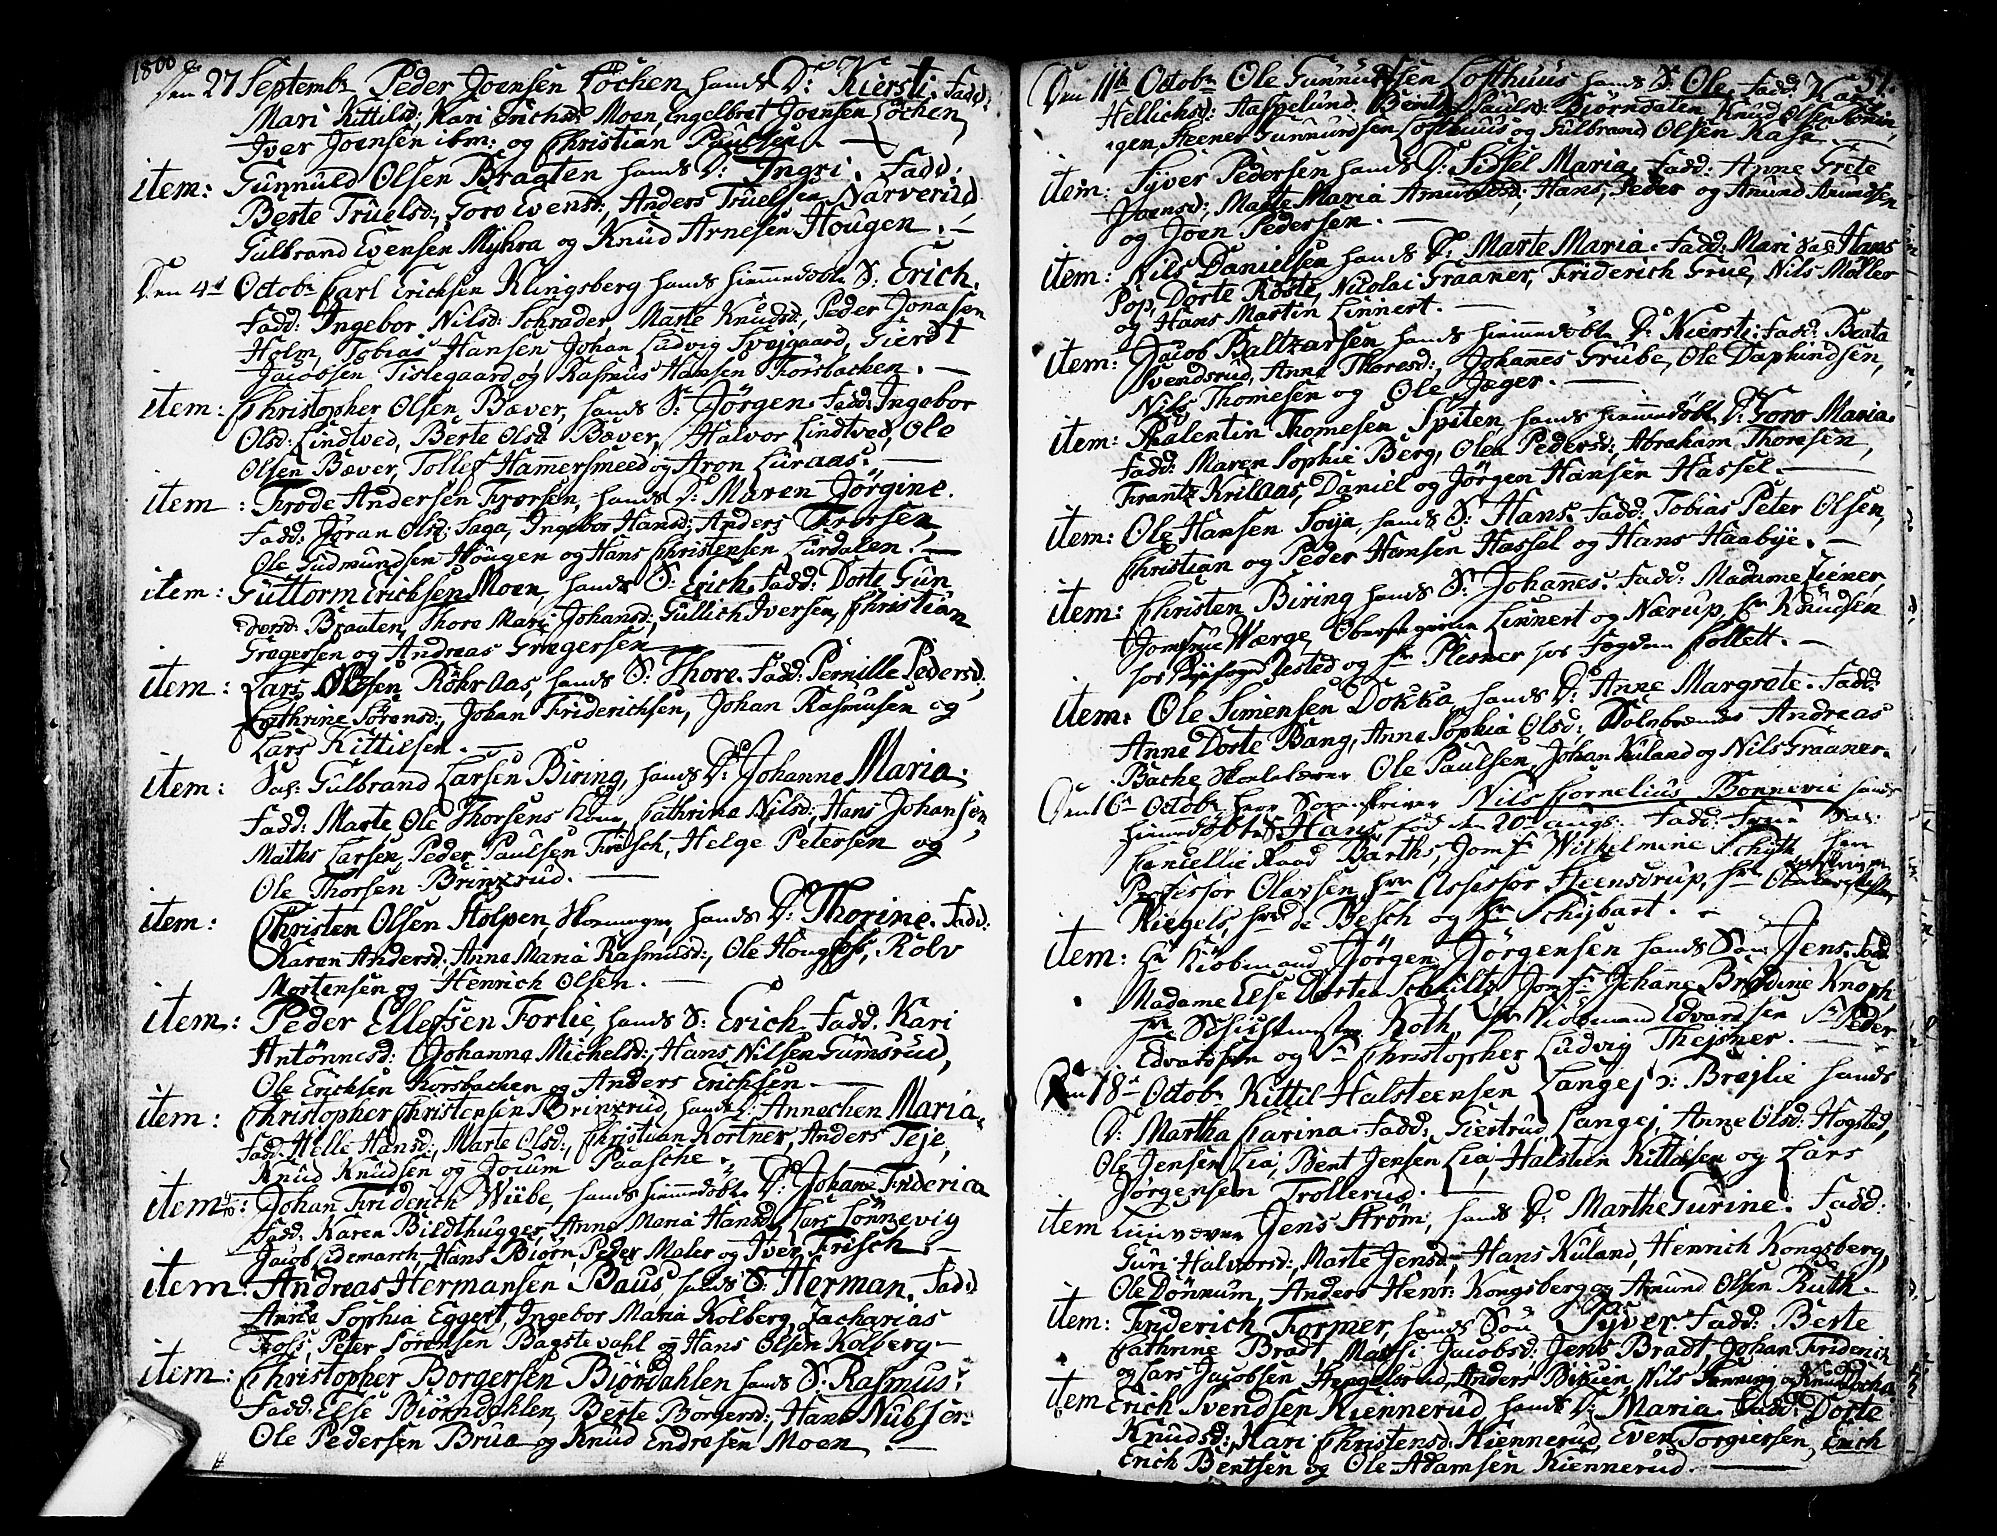 1800
Den 27 Septembr Peder Joensen Löchen hans D: Kiersti. Fadd:
Mari Kittilsd: Kari Erichsd: Moen, Engelbret Joensen Löchen,
Iver Joensen ibm: og Christian Paulsen. —
item: Gunnuld Olsen Bragten hans D: Ingri. Fadd:
Berte Truelsd:, Goro Evensd: Anders Truelsen Narverud
Gulbrand Evensen Myhra og Knud Arnesen Hougen. —
Den 4d Octobr Carl Erichsen Klingsberg hans hiemmedöbte S: Erich.
Fadd: Ingebor Nilsd: Schrader, Marte Knudsd, Peder Jonasen
Holm, Tobias Hansen Johan Ludvig Svejgaard, Gierdt
Jacobsen Tislegaard og Rasmus Hansen Korsbachen. —
item: Christopher Olsen Bæver, hans S: Jörgen. Fadd: Ingebor
Olsd: Lindtved, Berte Olsd Bæver, Halvor Lindtved, Ole
Olsen Bæver, Tollef Hammersmeed og Aron Luraas. —
item: Frode Andersen Frorsen, hans D: Maren Jörgine.
Fadd: Jöran Olsd: Saga, Ingebor Hansd: Anders Frorsen,
Ole Gudmundsen Hougen og Hans Christensen Lurdalen. —
item: Guttorm Erichsen Moen, hans S: Erich. Fadd: Dorte Gun
dersd: Braaten, Thore Mari Johansd:, Gullich Iversen, Christian
Gregersen og Andreas Gregersen —
item: Lars Olsen Röhraas, hans S: Thore. Fadd: Pernille Pedersd:
Cathrine Sörensd:, Johan Friderichsen, Johan Rasmusen og
Lars Kittilsen. —
item: Sal: Gulbrand Larsen Biring, hans D: Johanne Maria.
Fadd: Marte Ole Thorsens Kone, Cathrine Nilsd: Hans Johansen,
Mathis Larsen, Peder Paulsen Frisch, Helge Petersen og
Ole Thorsen Brinerud. —
item: Christen Olsen Stolpen, Skomager, hans D: Thorine. Fadd:
Karen Andersd: Anne Maria Rasmusd:, Ole Houg, Rolv
Mortensen og Henrich Olsen. —
item: Peder Ellefsen Forlie, hans S: Erich. Fadd. Kari
Antönnesd: Johanna Michelsd:, Hans Nilsen Gumsrud,
Ole Erichsen Korsbachen og Anders Erichsen. —
item: Christopher Christensen Brinerud, hans D: Annechen Maria.
Fadd: Helle Hansd: Marte Olsd:, Christian Kortner, Anders Teje,
Knud Knudsen og Jocum Paasche. —
item: Johan Friderich Wiibe, hans hiemmedöbte D: Johane Friderica
Fadd. Karen Bildthugger, Anne Maria Hansd, Lars Lönnevig
Jacob Lidemarch, Hans Biörn, Peder Maler og Iver Frisch. —
item: Andreas Hermansen Baus, hans S: Herman. Fadd
Anne Sophia Eggert, Ingebor Maria Kolberg, Zacharias
Foss, Peter Sörensen Bagstevahl og Hans Olsen Kolberg —
item: Christopher Borgersen Biördahlen hans S: Rasmus:
Fadd: Else Biörndahlen, Berte Borgersd:, Hans Nubser.
Ole Pedersen Brua og Knud Endresen Moen. —
51.
Den 11te Octobr Ole Gunnufsen Lofthuus hans S: Ole. Fadd:
Hellichsd: Haspelund. Bente Paulsd: Biörndalen Knud Olsen
gen, Steener Gunnundsen Lofthuus og Gulbrand Olsen Kasse. —
item: Syver Pedersen hans D: Sidsel Maria. Fadd: Anne Grete
Joensd:, Marte Maria Amundsd:, Hans, Peder og Amund Amundsen
og Joen Pedersen. —
item: Nils Danielsen hans D: Marte Maria. Fadd: Mari sal: Hans
Pop, Dorte Röste, Nicolai Graaner, Friderich Grue, Nils Möller
og Hans Martin Linnert. —
item: Jacob Baltzarsen hans hiemmedöbte D: Kiersti. Fadd: Beata
Svendsrud, Anne Thoresd:, Johanes Grube, Ole Daplundsen,
Nils Thomesen og Ole Jæger. —
item: Thalentin Thomesen Spiten hans hiemmedöbte D: Goro Maria.
Fadd: Maren Sophie Berg, Olea Pedersd: Abraham Thoresen,
Frantz Krilaas, Daniel og Jörgen Hansen Hassel. —
item: Ole Hansen Soya, hans S: Hans. Fadd: Tobias Peter Olsen,
Christian og Peder Hansen Hassel og Hans Haabye. —
item: Christen Biring hans S: Johannes. Fadd: Madame Ziener,
Jomfrue Wærge, Linnert og Nærup, Hr Knudsen
hos Byefoged Ursted og Hr Plesner hos Fogden Collett. —
item: Ole Simensen Dokka hans D: Anne Margrete. Fadd:
Anne Dorte Bang, Anne Sophia Olsd: Andreas
Bache Skolelærer Ole Paulsen, Johan Kuland og Nils Graaner.
Den 16 Octobr herr Sorenskriver Nils Cornelius Bonnevie hans
hiemmedöbte S. Hans, född den 20de augs. Fadd: Frue Sal:
Cancellie Raad Barths, Jomfr Wilhelmine Schytt, Herr
Professor Olavsen, Hrr Assessor Steensdrup, Hr
Kiegels, Hrr de Besch og Hr Schybart. —
item: Hr Kiöbmand Jörgen Jörgensen hans Sön Jens. Fadd
Madame Else Dortea Schultz, Jomfr Johane Birgine Knoph,
Hr Schichtmester Roth, Hr Kiöbmand Edvardsen Sr Peder
Edvardsen og Sr Christopher Ludvig Thejsner. —
Den 18d Octobr Kittil Halsteensen Langej ɔ: Brejlie hans
D: Martha Carina. Fadd: Giertrud Langej, Anne Olsd: Hogsted,
Ole Jensen Lia, Bent Jensen Lia, Halstein Kittilsen og Lars
Jörgensen Trollerud. —
item Linvæver Jens Ström, hans D: Marthe Gurine. Fadd:
Guri Halvorsd:, Marte Jensd:, Hans Kuland, Henrich Kongsberg,
Ole Dönnum, Anders Henr: Kongsberg og Amund Olsen Ruth. —
item: Friderich Former, hans Sön Syver. Fadd: Berte
Cathrine Bradt, Jacobsd: Jens Bradt, Johan Friderich
og Lars Jacobsen Hengelsrud, Anders Bisien, Nils Tanning og Knud Docka
item Erich Svendsen Kiennerud hans D: Maria. Fadd: Dorte
Knudsd: Mari Christensd: Kiennerud, Even Torgiersen, Erich
Erich Bentsen og Ole Adamsen Kiennerud. —